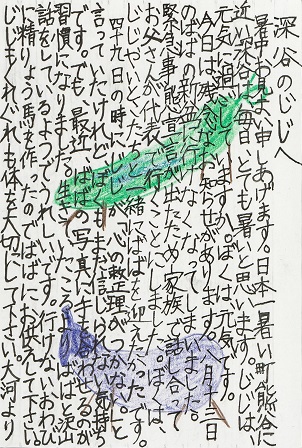 深谷のじじへ
暑中お見まい申しあげます。日本一暑い町熊谷に
近い深谷も毎日とても暑いと思います。じじは
元気に過ごしていますか。ぼくは元気です。
今日は残念なお知らせがあります。八月十三日
のばばの新盆に行けなくなってしまいました。
緊急事態宣言が出たため、家族で話し合って
お父さんが代表で行くことにしました。ぼくは、
じじやいとこたちと一緒にばばを迎えたかったです。
四十九日の時に、じじが「心の整理がつかない」と
言っていたけれど、ぼくもまだ信じられない気持ち
です。でも、最近、ばばの写真に手を合わせるのが
習慣になりました。生きていたころよりばばと沢山
話をしているようでうれしいです。行けないおわび
に精りょう馬を作ったのでばばにお供えして下さい。
じじもくれぐれも体を大切にして下さい。大河より